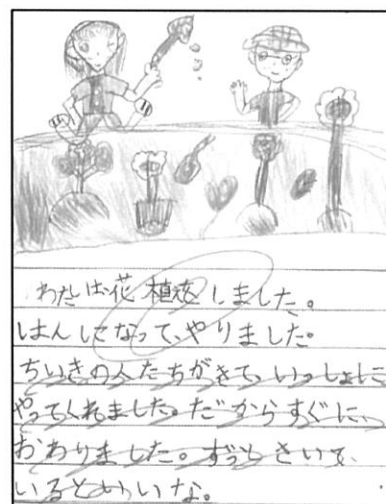 わたしは、花植えをしました。
しはんしになって、やりました。
ちいきの人たちがきて、いっしょに
やってくれました。だからすぐに、
おわりました。ずっとさいて、
いるといいな。